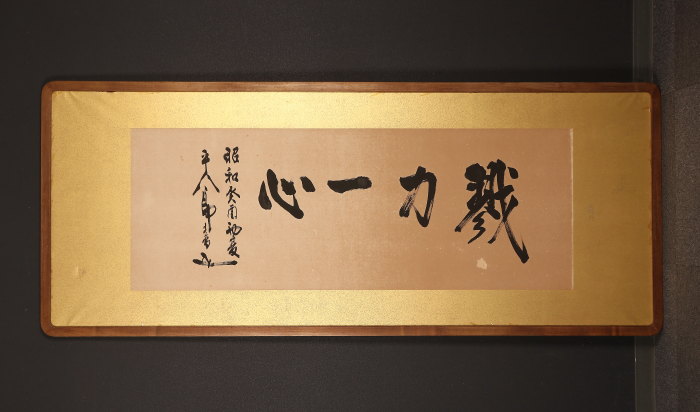 戮力一心
昭和癸酉初夏
平八郎書